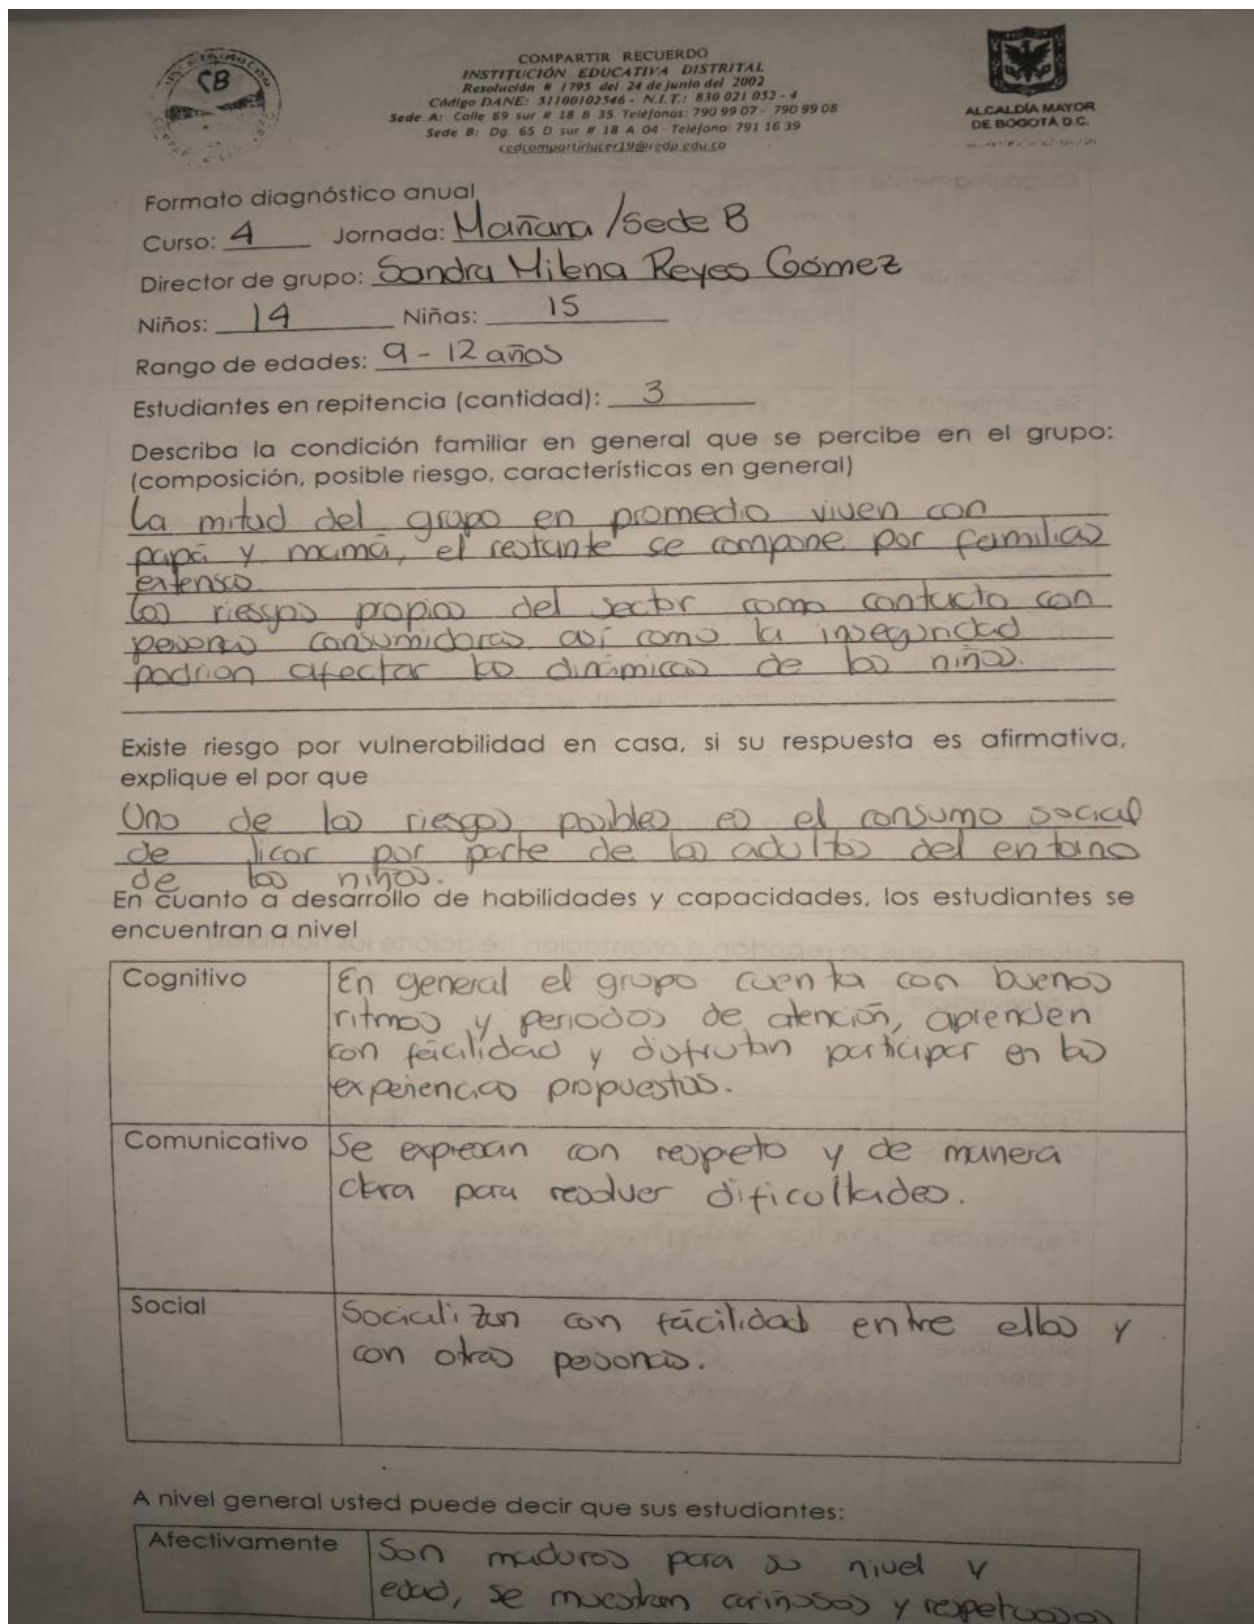 CB
COMPARTIR RECUERDO
INSTITUCIÓN EDUCATIVA DISTRITAL
Resolución # 1795 del 24 de junio del 2002
Código DANE: 51100102546 - N.I.T.: 830 021 052 - 4
Sede A: Calle 69 sur # 18 B 35. Teléfonos: 790 99 07 - 790 99 08
Sede B: Dg. 65 D sur # 18 A 04 - Teléfono: 791 16 39
ALCALDÍA MAYOR
DE BOGOTÁ D.C.
Formato diagnóstico anual
Curso: 4 Jornada: Mañana /Sede B
Director de grupo: Sandra Milena Reyes Gómez
Niños: 14 Niñas: 15
Rango de edades: 9 - 12 años
Estudiantes en repitencia (cantidad): 3
Describa la condición familiar en general que se percibe en el grupo:
(composición, posible riesgo, características en general)
La mitad del grupo en promedio viven con
papá y mamá, el restante se compone por familias
extensas
Los riesgos propios del sector como contacto con
personas consumidoras así como la inseguridad
podrían afectar las dinámicas de los niños.
Existe riesgo por vulnerabilidad en casa, si su respuesta es afirmativa,
explique el por que
Uno de los riesgos posibles es el consumo social
de licor por parte de los adultos del entorno
de los niños.
En cuanto a desarrollo de habilidades y capacidades, los estudiantes se
encuentran a nivel
Cognitivo
En general el grupo cuenta con buenos
ritmos y periodos de atención, aprenden
con fácilidad y disfrutan participar en las
experiencias propuestas.
Comunicativo
Se expresan con respeto y de manera
clara para resolver dificultades.
Social
Socializan con fácilidad entre ellos y
con otras personas.
A nivel general usted puede decir que sus estudiantes:
Afectivamente
Son maduros para su nivel y
edad, se muestran cariñosos y respetuosos